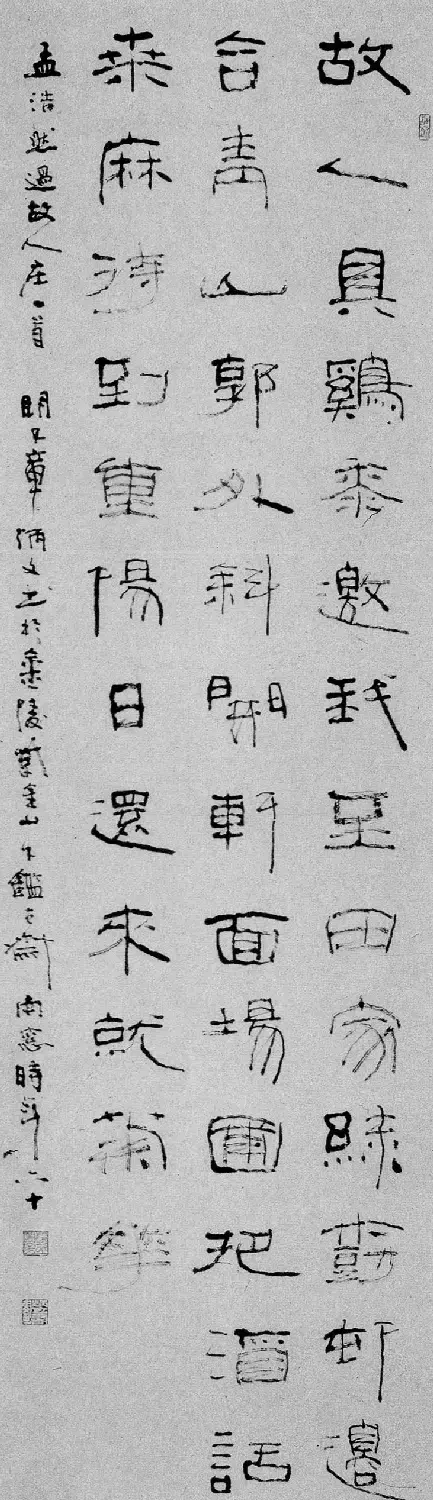 故人具鷄黍邀我至田家綠樹邨邊
合青山郭外斜開軒面場圃把酒話
桑麻待到重陽日還來就菊華
孟浩然過故人庄一首 章炳文书於金陵紫金山下鑑古齋南窓時年六十